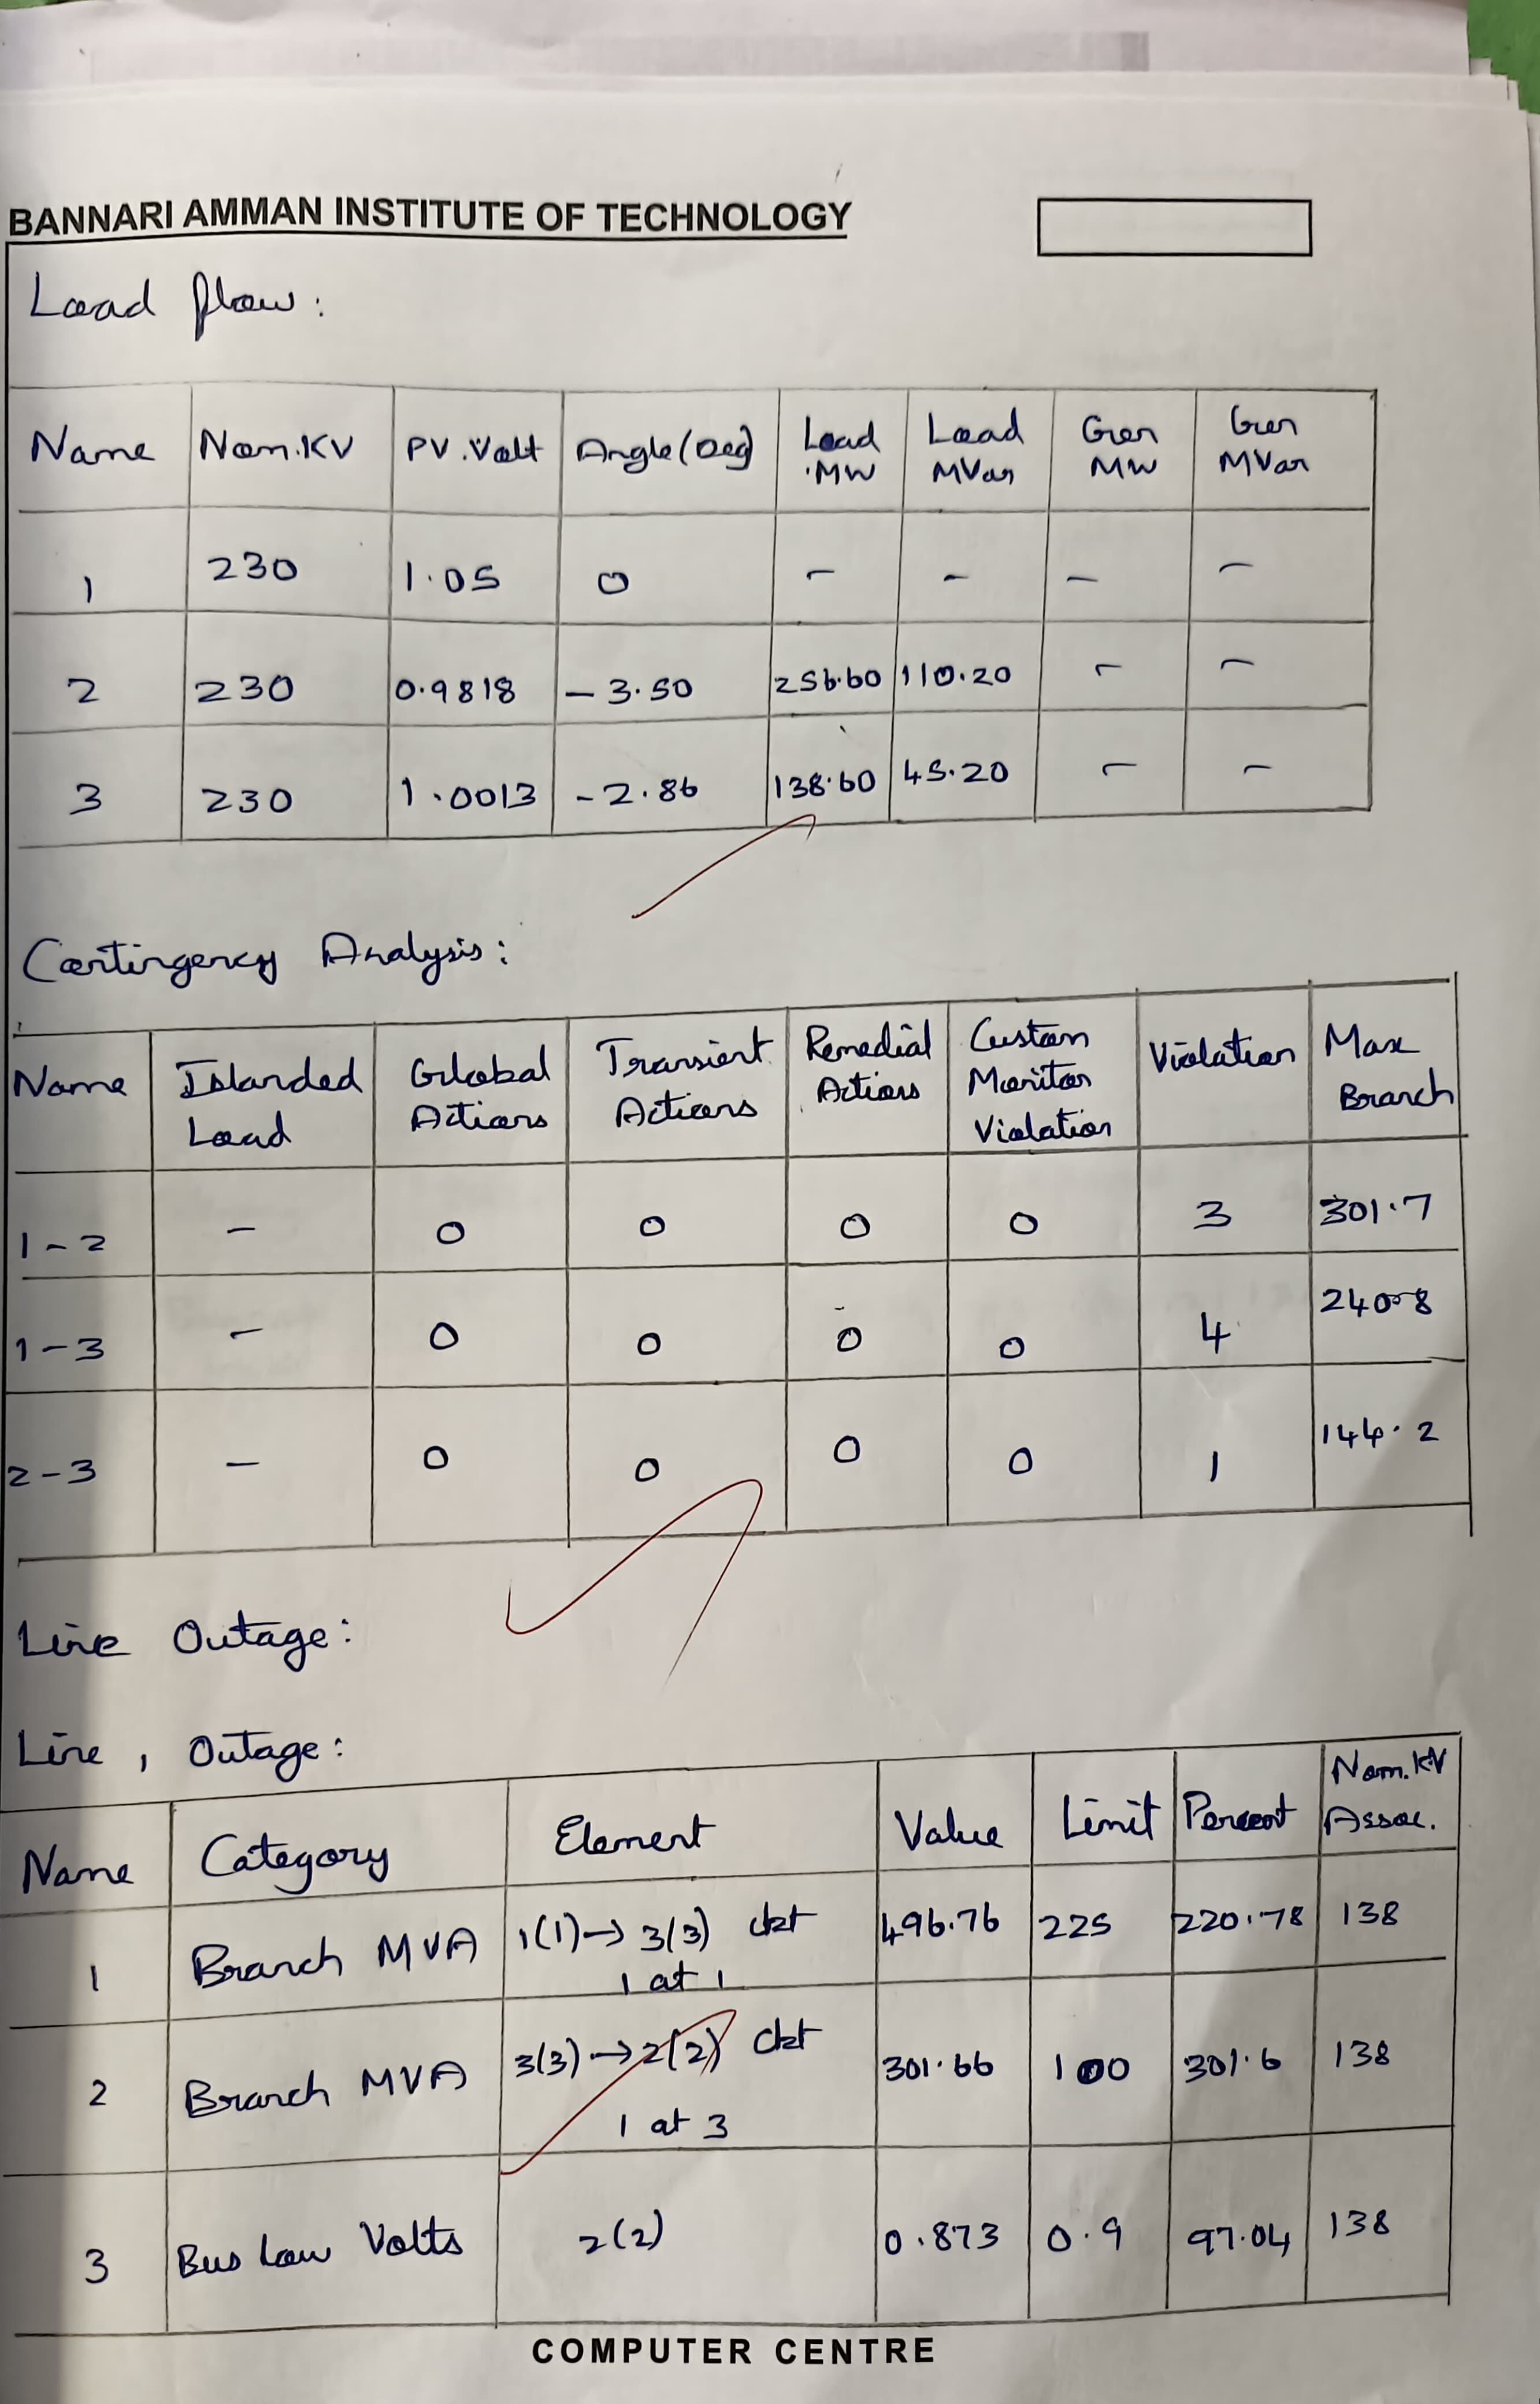 BANNARI AMMAN INSTITUTE OF TECHNOLOGY
Load flow:
Name Nom.KV PV.Volt Angle(Deg) Load MW Load MVar Gen MW Gen MVar
1 230 1.05 0 - - - -
2 230 0.9818 -3.50 256.60 110.20 - -
3 230 1.0013 -2.86 138.60 45.20 - -
Contingency Analysis:
Name Islanded Load Global Actions Transient Actions Remedial Actions Custom Monitor Violation Violation Max Branch
1-2 - 0 0 0 0 3 301.7
1-3 - 0 0 0 0 4 240.8
2-3 - 0 0 0 0 1 144.2
Line Outage:
Line, Outage:
Name Category Element Value Limit Percent Nom.KV Assoc.
1 Branch MVA 1(1)→3(3) ckt 1 at 1 496.76 225 220.78 138
2 Branch MVA 3(3)→2(2) ckt 1 at 3 301.66 100 301.6 138
3 Bus Low Volts 2(2) 0.873 0.9 97.04 138
COMPUTER CENTRE